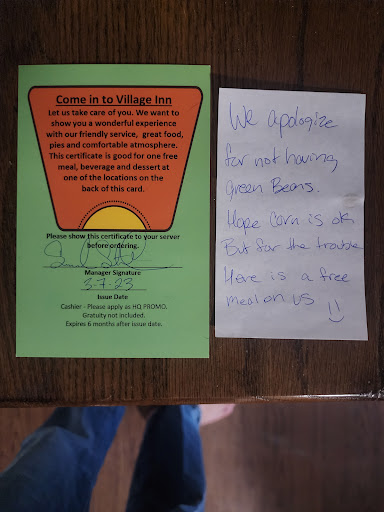 Come in to Village Inn
Let us take care of you. We want to
show you a wonderful experience
with our friendly service, great food,
pies and comfortable atmosphere.
This certificate is good for one free
meal, beverage and dessert at
one of the locations on the
back of this card.
Please show this certificate to your server
before ordering.
Manager Signature
3-7-23
Issue Date
Cashier - Please apply as HQ PROMO.
Gratuity not included.
Expires 6 months after issue date.
We apologize
for not having
green Beans.
Hope Corn is ok
But for the trouble
Here is a free
meal on us